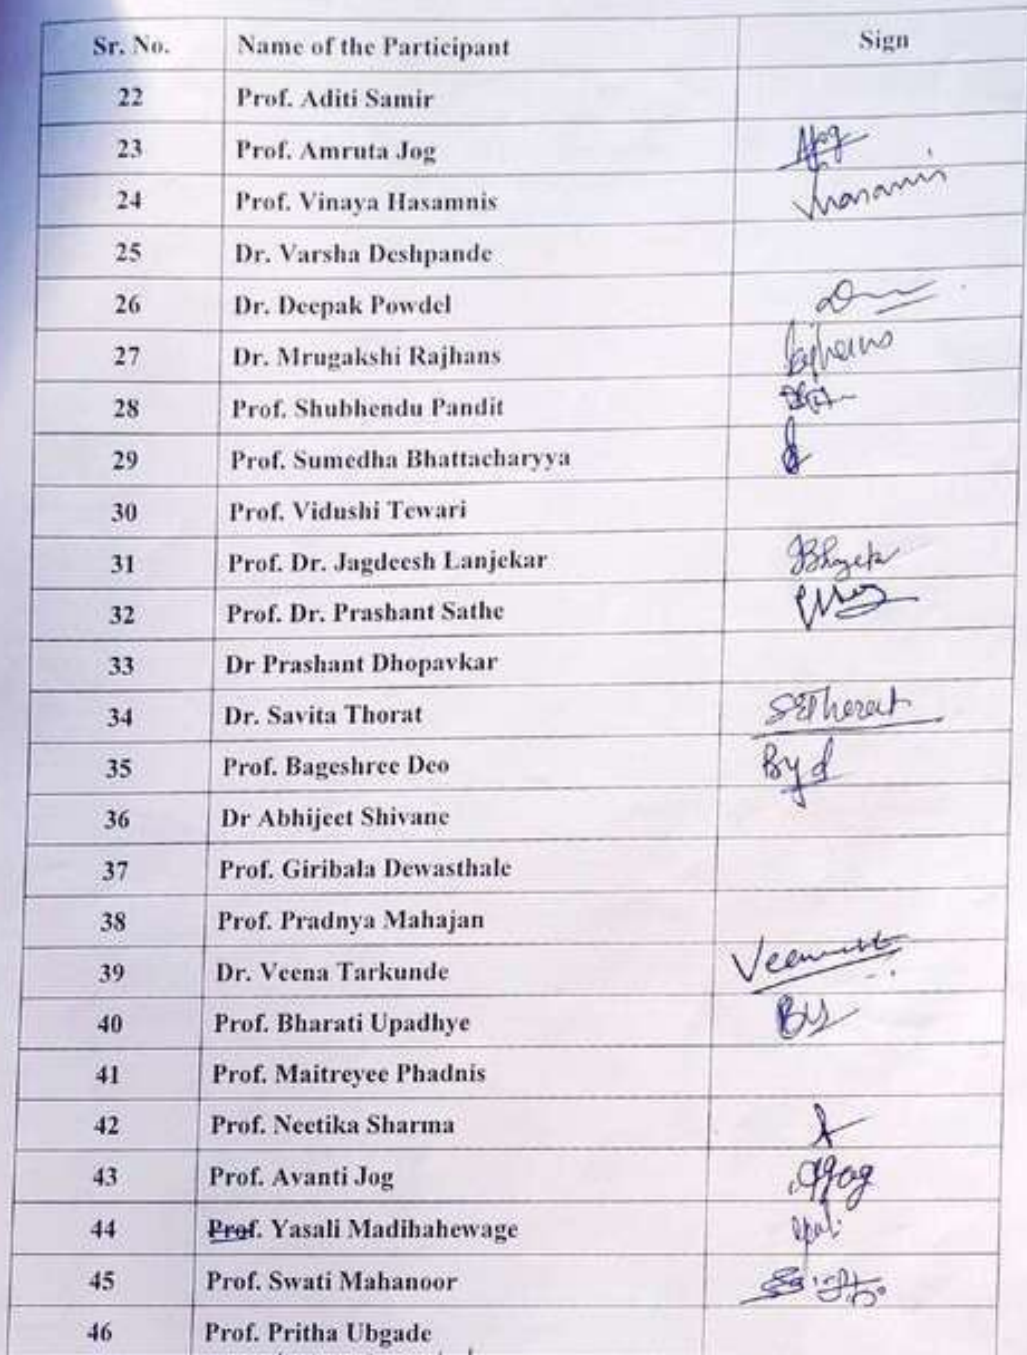 Sr. No. Name of the Participant Sign
22 Prof. Aditi Samir
23 Prof. Amruta Jog
24 Prof. Vinaya Hasamnis
25 Dr. Varsha Deshpande
26 Dr. Deepak Powdel
27 Dr. Mrugakshi Rajhans
28 Prof. Shubhendu Pandit
29 Prof. Sumedha Bhattacharyya
30 Prof. Vidushi Tewari
31 Prof. Dr. Jagdeesh Lanjekar
32 Prof. Dr. Prashant Sathe
33 Dr Prashant Dhopavkar
34 Dr. Savita Thorat
35 Prof. Bageshree Deo
36 Dr Abhijeet Shivane
37 Prof. Giribala Dewasthale
38 Prof. Pradnya Mahajan
39 Dr. Veena Tarkunde
40 Prof. Bharati Upadhye
41 Prof. Maitreyee Phadnis
42 Prof. Neetika Sharma
43 Prof. Avanti Jog
44 Prof. Yasali Madihahewage
45 Prof. Swati Mahanoor
46 Prof. Pritha Ubgade